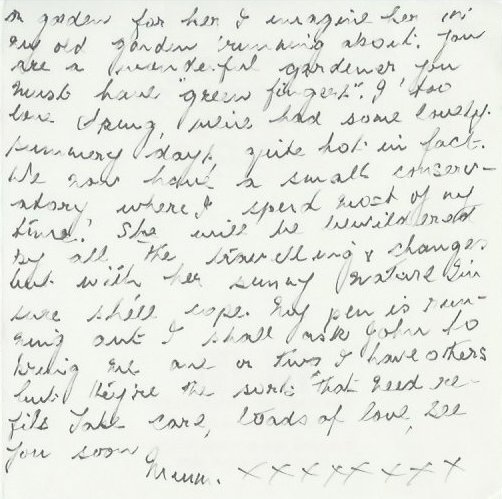 a garden for her I imagine her in
my old garden running about. You
are a wonderful gardener you
must have "green fingers". I too
love Spring, we've had some lovely
summery days, quite hot in fact.
We now have a small conserv-
atory where I spend most of my
time! She will be bewildered
by all the travelling & changes
but with her sunny nature I'm
sure she'll cope. My pen is run-
ning out I shall ask John to
bring me one or two I have others
but they're the sort that need re-
fils Take care, loads of love, see
you soon
Mum. x x x x x x x x